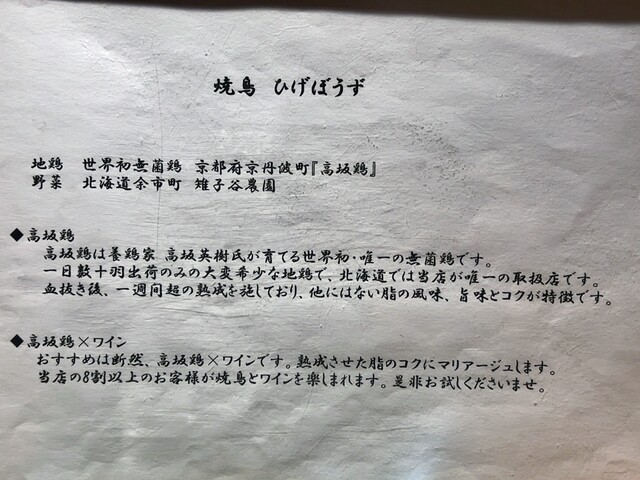 焼鳥 ひげぼうず
地鶏 世界初無菌鶏 京都府京丹波町『高坂鶏』
野菜 北海道余市町 雉子谷農園
◆高坂鶏
高坂鶏は養鶏家 高坂英樹氏が育てる世界初・唯一の無菌鶏です。
一日数十羽出荷のみの大変希少な地鶏で、北海道では当店が唯一の取扱店です。
血抜き後、一週間超の熟成を施しており、他にはない脂の風味、旨味とコクが特徴です。
◆高坂鶏×ワイン
おすすめは断然、高坂鶏×ワインです。熟成させた脂のコクにマリアージュします。
当店の8割以上のお客様が焼鳥とワインを楽しまれます。是非お試しくださいませ。